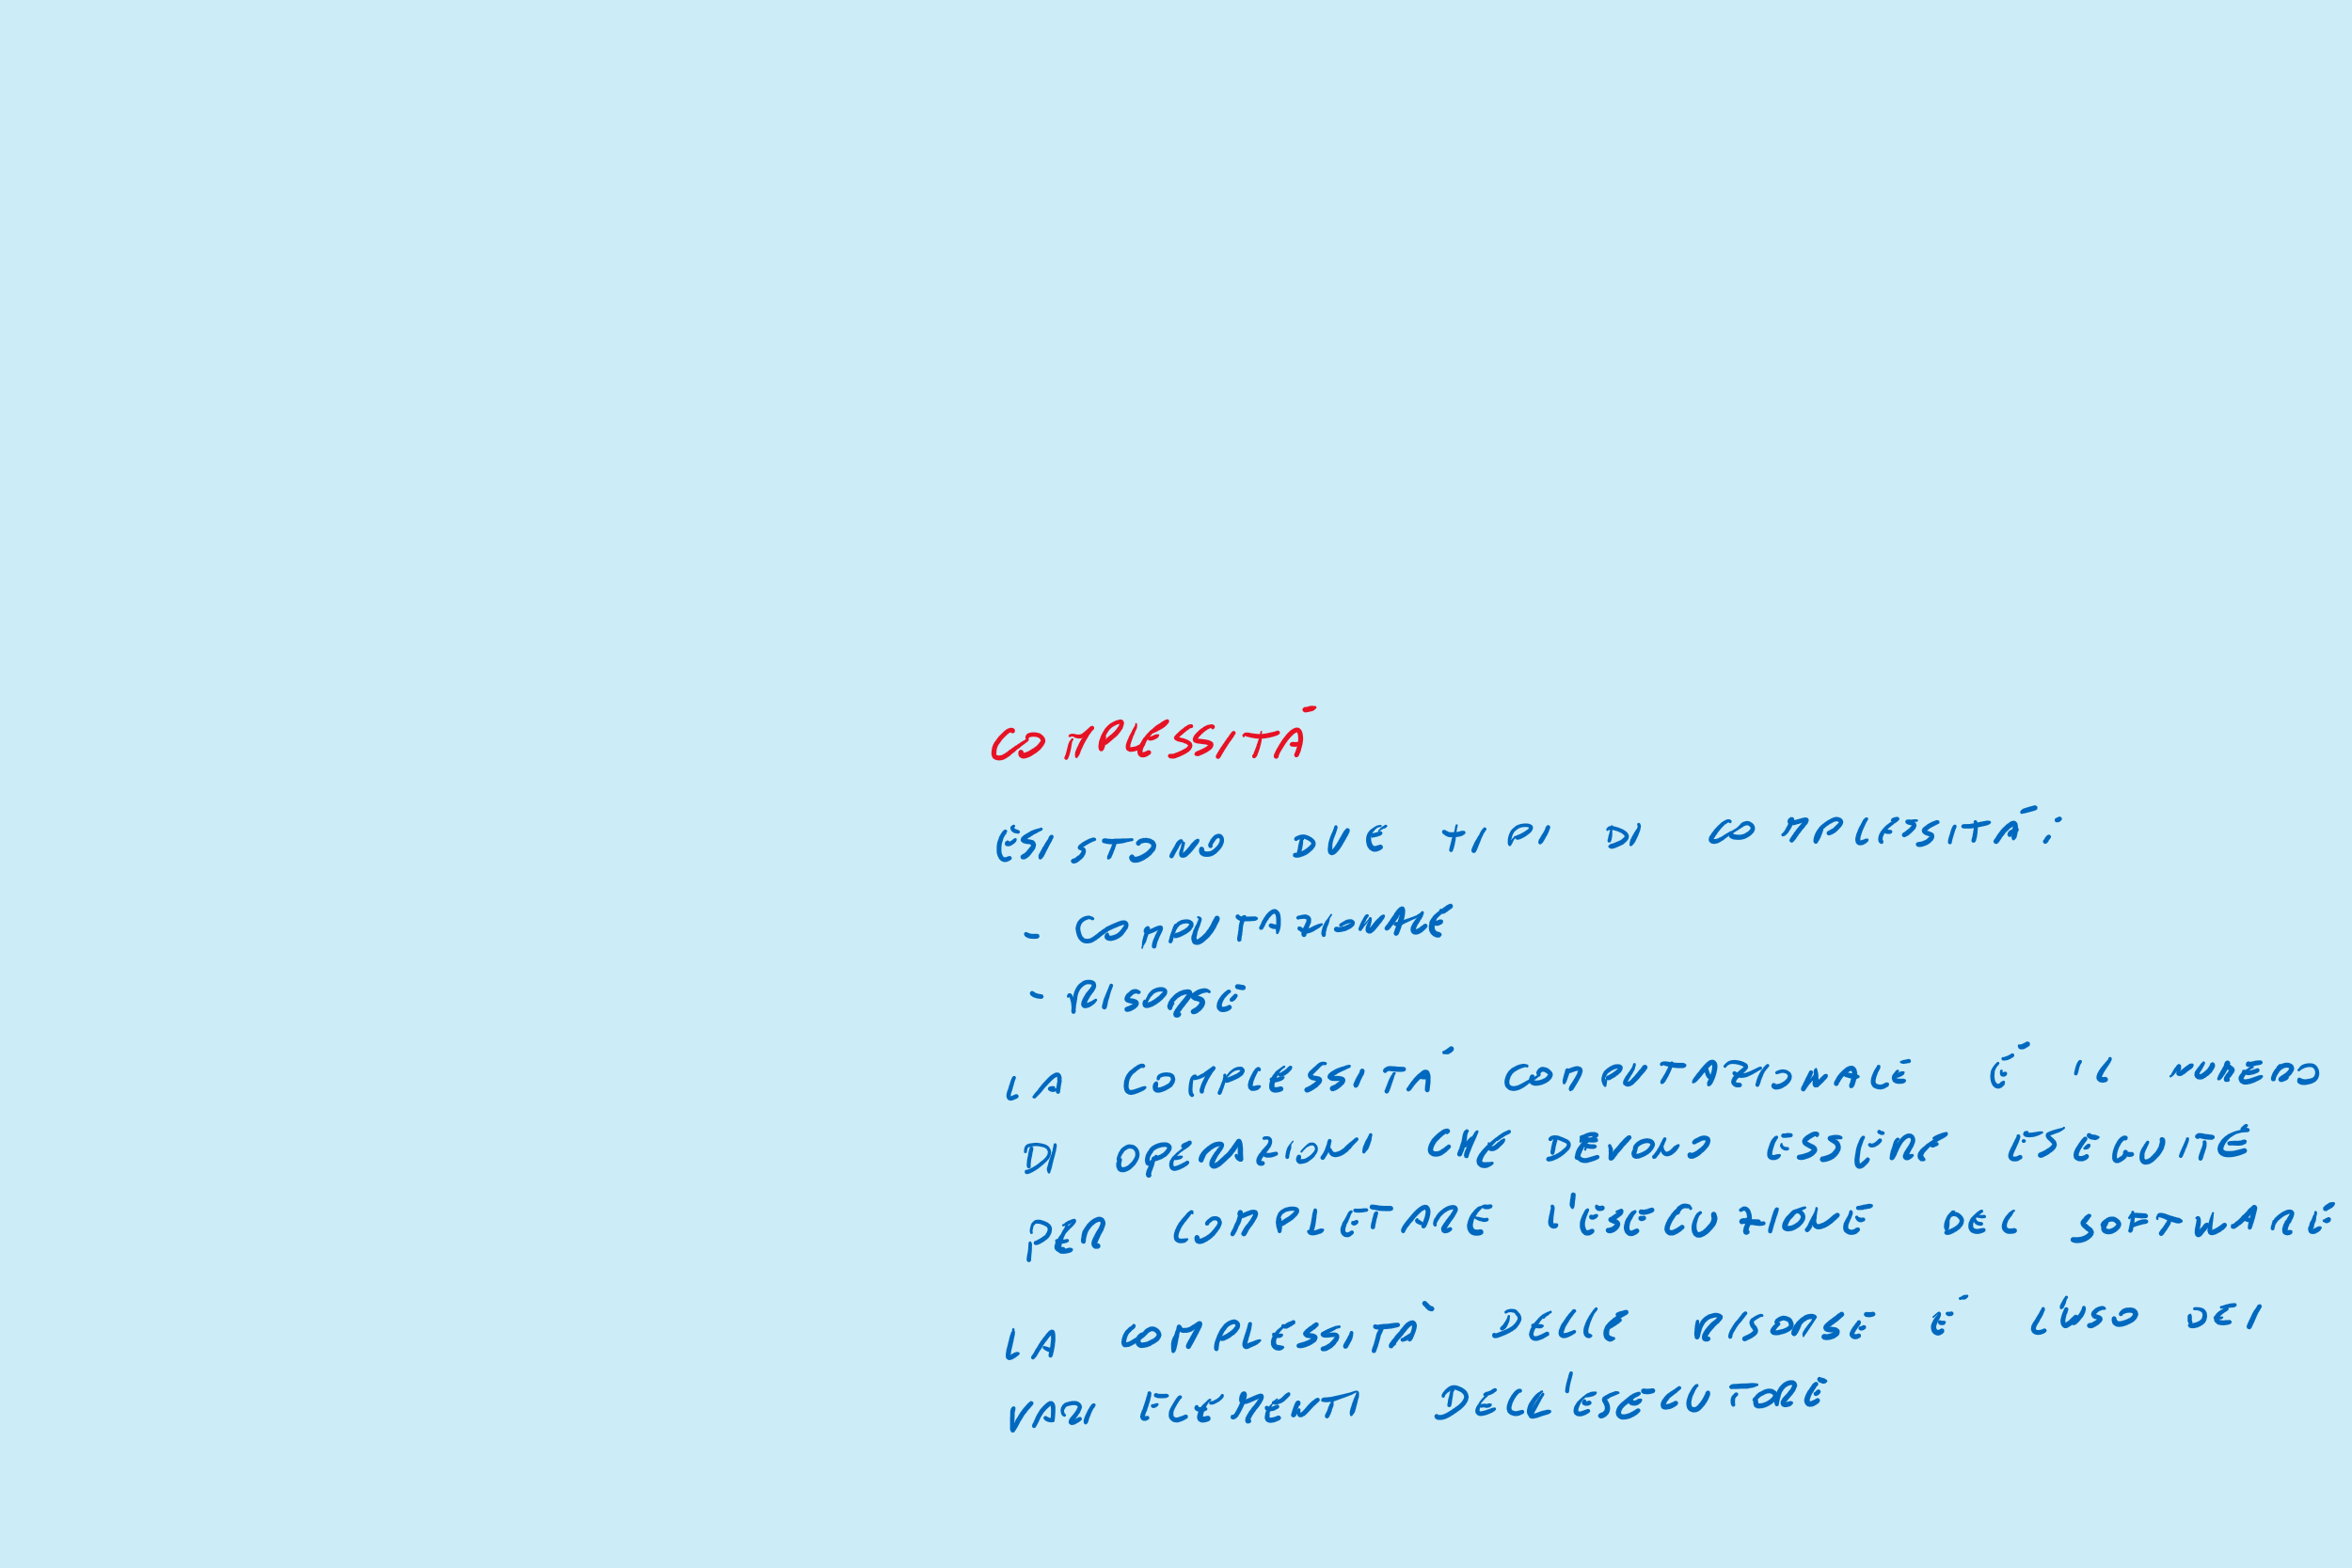 COMPLESSITÁ
ESISTONO DUE TIPI DI COMPLESSITÁ:
- COMPUTAZIONALE
- RISORSE
LA COMPLESSITÁ COMPUTAZIONALE É IL NUMERO
DI OPERAZIONI CHE DEVONO ESSERE ESEGUITE
PER COMPLETARE L'ESECUZIONE DEL SOFTWARE
LA COMPLESSITÀ DELLE RISORSE É L'USO DEI
VARI ELEMENTI DELL'ESECUTORE